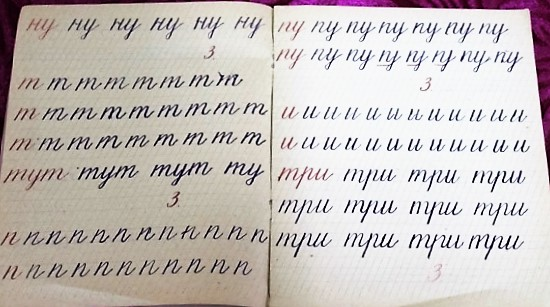 ну ну ну ну ну ну
3.
т т т т т т т т
т т т т т т т т т
т т т т т т т т т
тут тут тут ту
3.
п п п п п п п п п п п п
п п п п п п п п п п п
пу пу пу пу пу пу пу
пу пу пу пу пу пу пу пу
3
и и и и и и и и и и и и
и и и и и и и и и и и и
три три три три
три три три три
три три три три
3